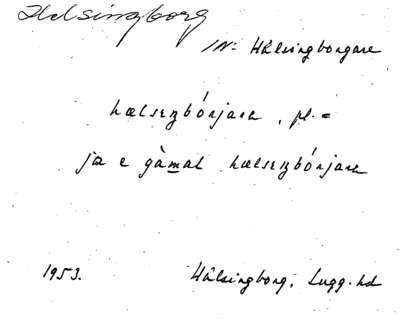 Helsingborg
IN: Hälsingborgare
hælsɪŋbórjara, pl. =
ja e gàmal hælsɪŋbórjara
1953. Hälsingborg, Lugg. hd